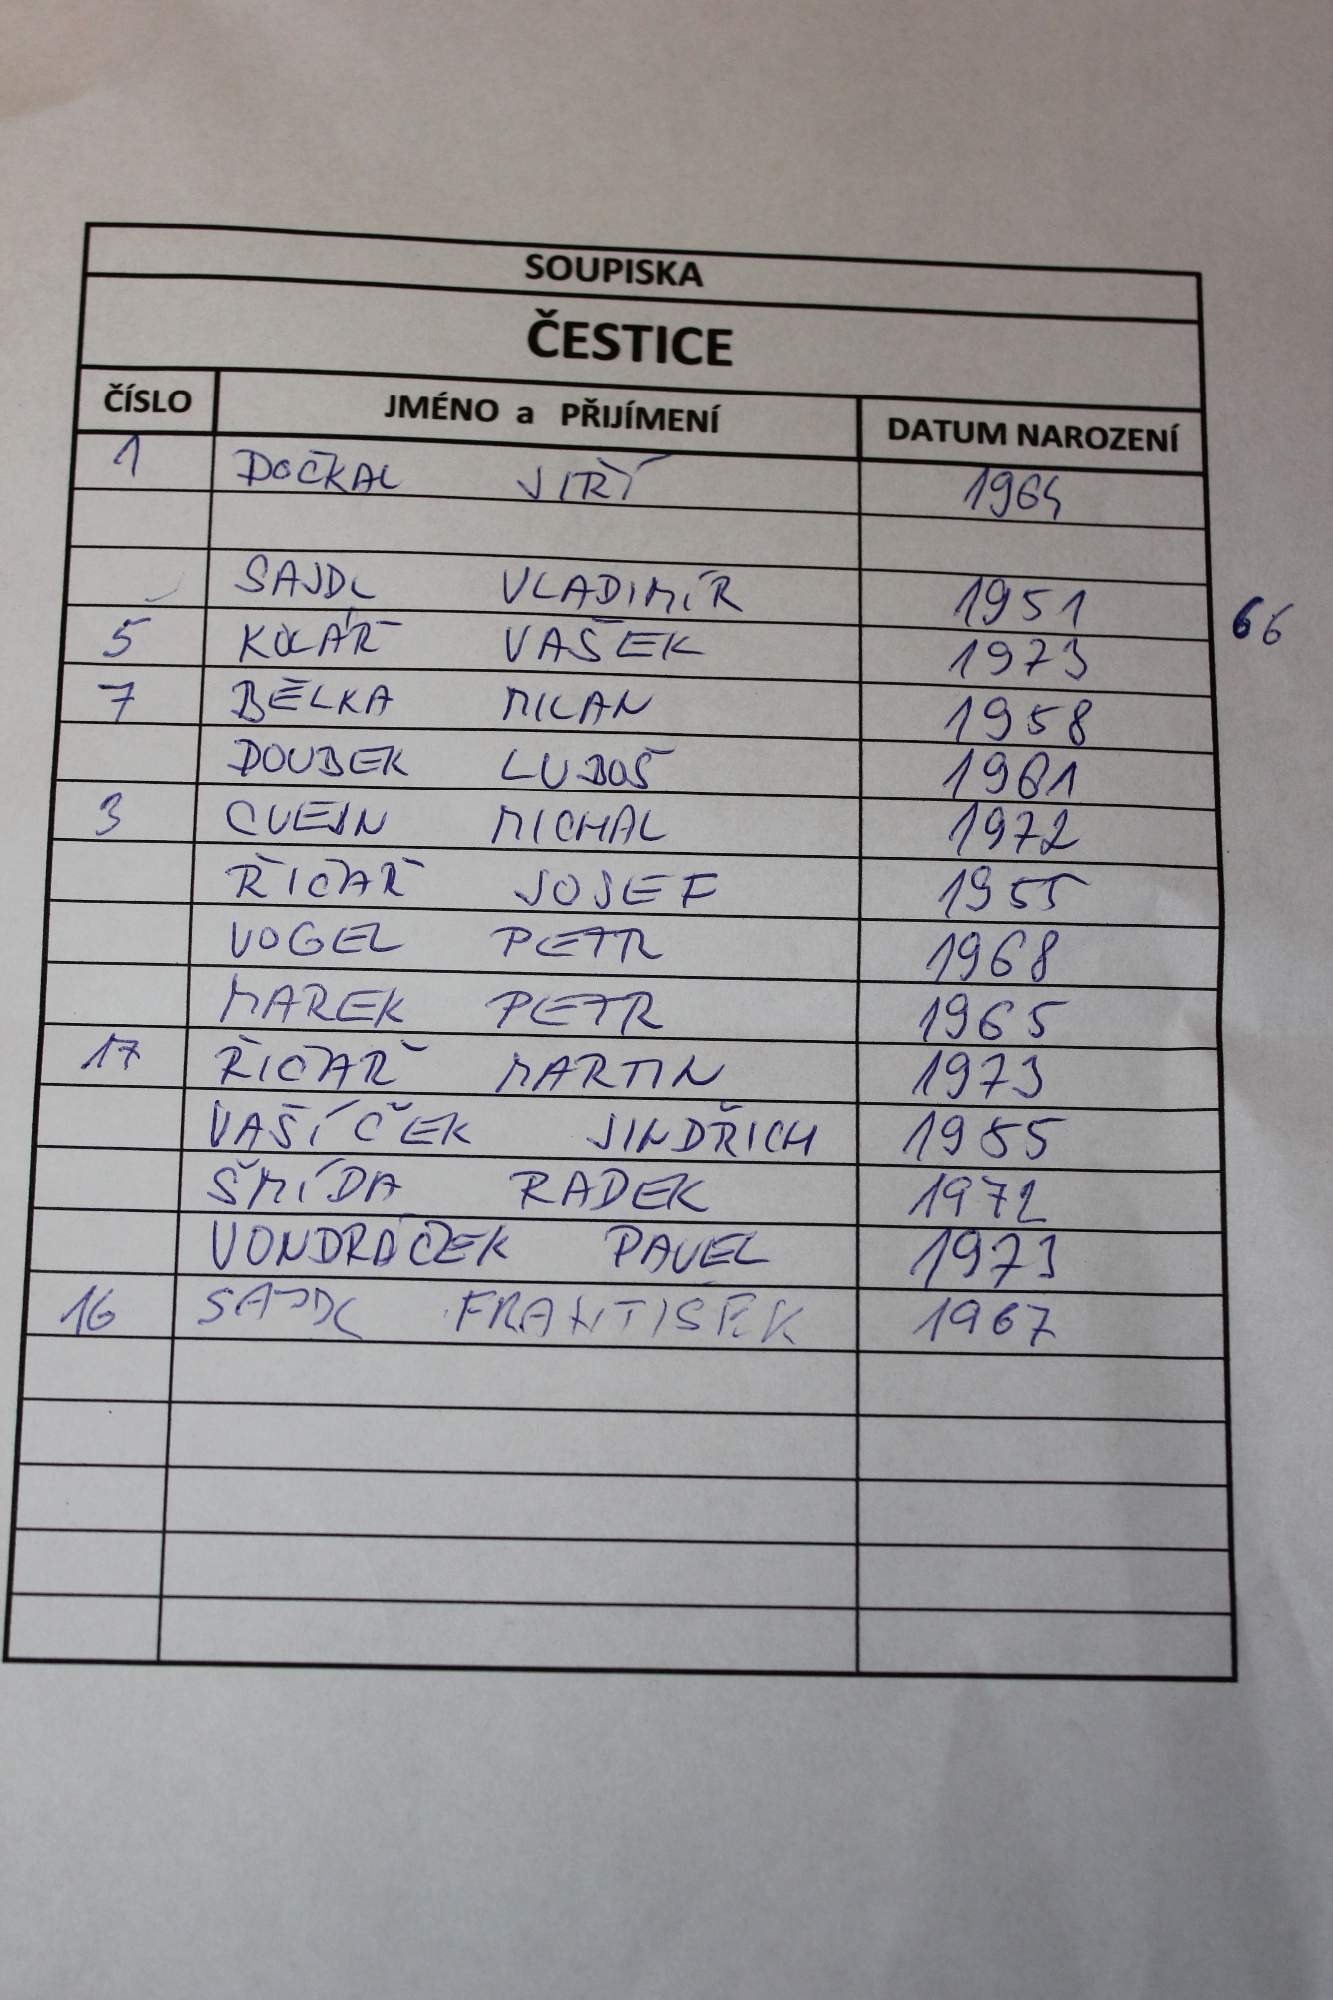 SOUPISKA
ČESTICE
ČÍSLO JMÉNO a PŘIJÍMENÍ DATUM NAROZENÍ
1 DOČKAL JIŘÍ 1964
SAJDL VLADIMÍR 1951 66
5 KOLÁŘ VAŠEK 1973
7 BĚLKA MILAN 1958
DOUBEK LUBOŠ 1961
3 CVEJN MICHAL 1972
ŘIČAŘ JOSEF 1955
VOGEL PETR 1968
MAREK PETR 1965
17 ŘIČAŘ MARTIN 1973
VAŠÍČEK JINDŘICH
ŠMÍDA RADEK 1972
VONDRÁČEK PAVEL 1973
16 SAJDL FRANTIŠEK 1967